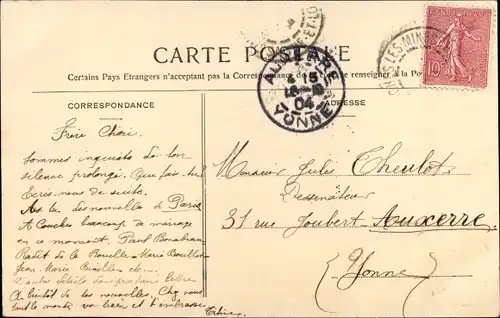 CARTE POSTALE
Certains Pays Etrangers n'acceptent pas la Correspondance se renseigner à la Po
CORRESPONDANCE
ADRESSE
AUXERRE
04
YONNE
10
Frère Chéri
Sommes inquiets de ton
silence prolongé. Que fais-tu?
Ecris-nous de suite.
As-tu des nouvelles de Paris
A Couches beaucoup de mariage
en ce moment. Paul Bonnabeau
de la Marie
Jean-Marie
lettre
A bientôt de tes nouvelles. Chez nous
tout le monde va bien et t'embrasse
Monsieur Jules Cheulot
Dessinateur
31 rue Joubert Auxerre
(Yonne)